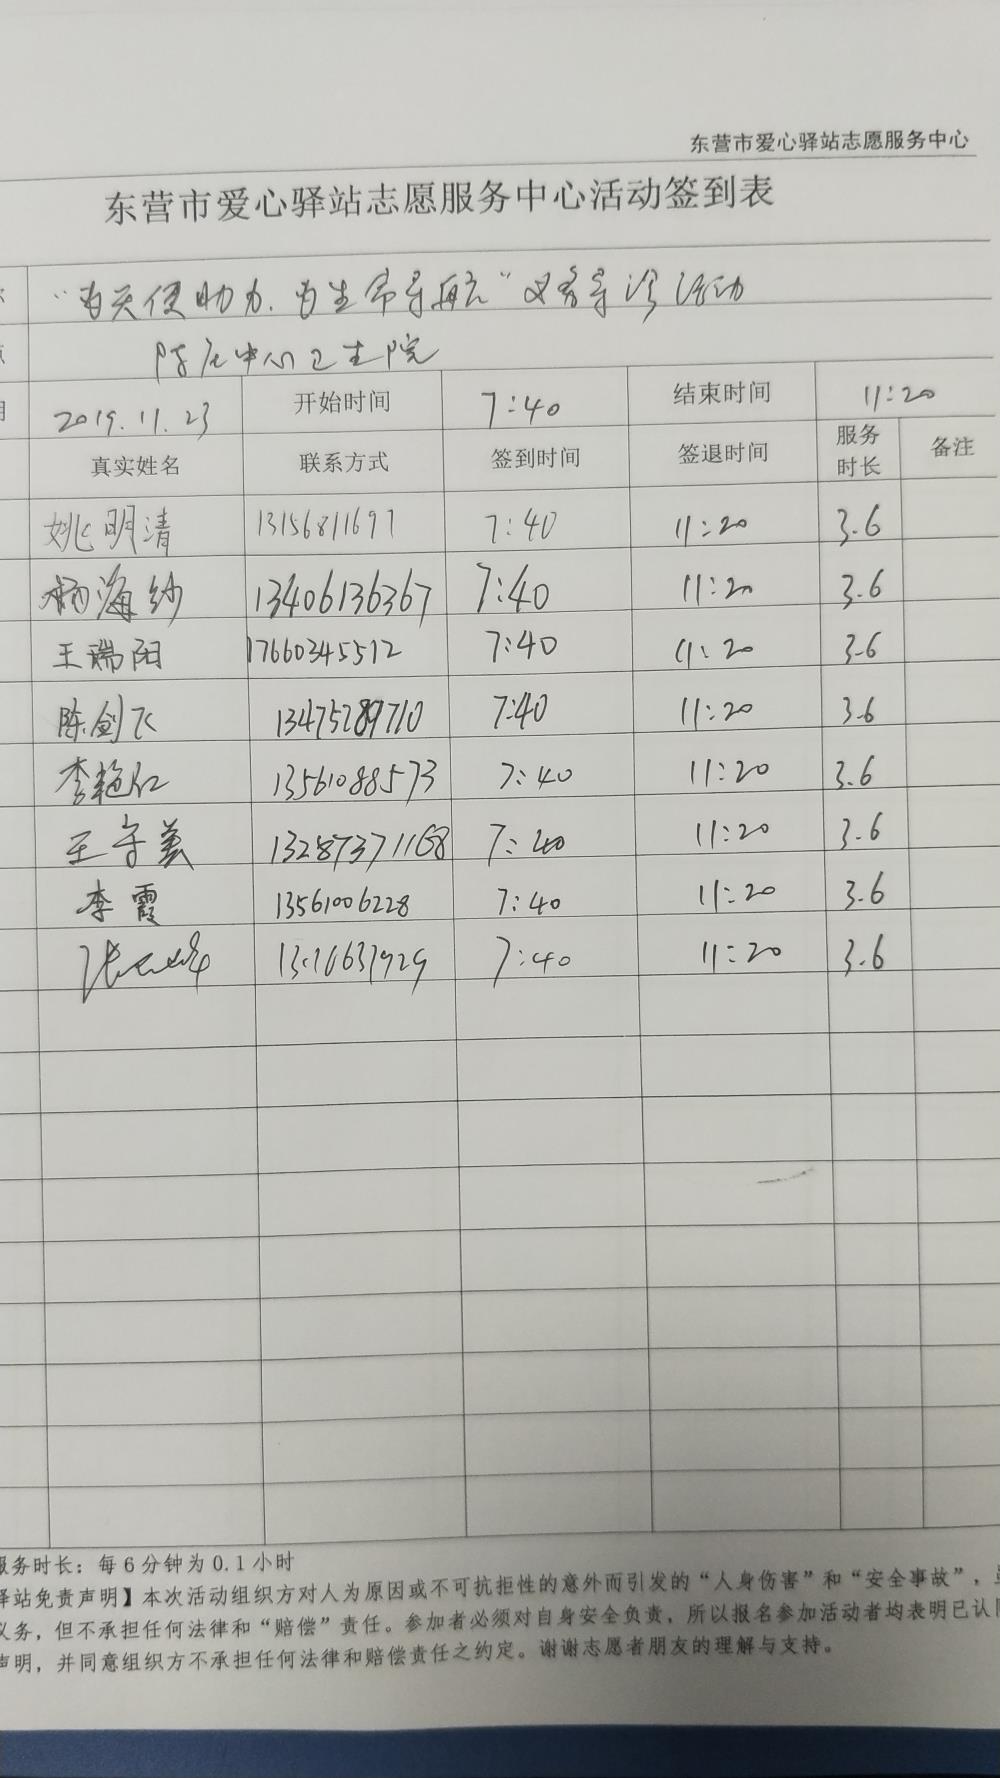 东营市爱心驿站志愿服务中心
东营市爱心驿站志愿服务中心活动签到表
“为天使助力.为生命导航”义务导诊活动
陈庄中心卫生院
2019.11.23 开始时间 7:40 结束时间 11:20
真实姓名 联系方式 签到时间 签退时间 服务时长 备注
姚明清 13156811697 7:40 11:20 3.6
杨海纱 13406136367 7:40 11:20 3.6
王瑞阳 17660345512 7:40 11:20 3.6
陈剑飞 13475289710 7:40 11:20 3.6
李艳红 13561088573 7:40 11:20 3.6
王守美 13287371168 7:40 11:20 3.6
李霞 13561006228 7:40 11:20 3.6
7:40 11:20 3.6
服务时长：每6分钟为0.1小时
驿站免责声明】本次活动组织方对人为原因或不可抗拒性的意外而引发的“人身伤害”和“安全事故”，
义务，但不承担任何法律和“赔偿”责任。参加者必须对自身安全负责，所以报名参加活动者均表明已认同
声明，并同意组织方不承担任何法律和赔偿责任之约定。谢谢志愿者朋友的理解与支持。